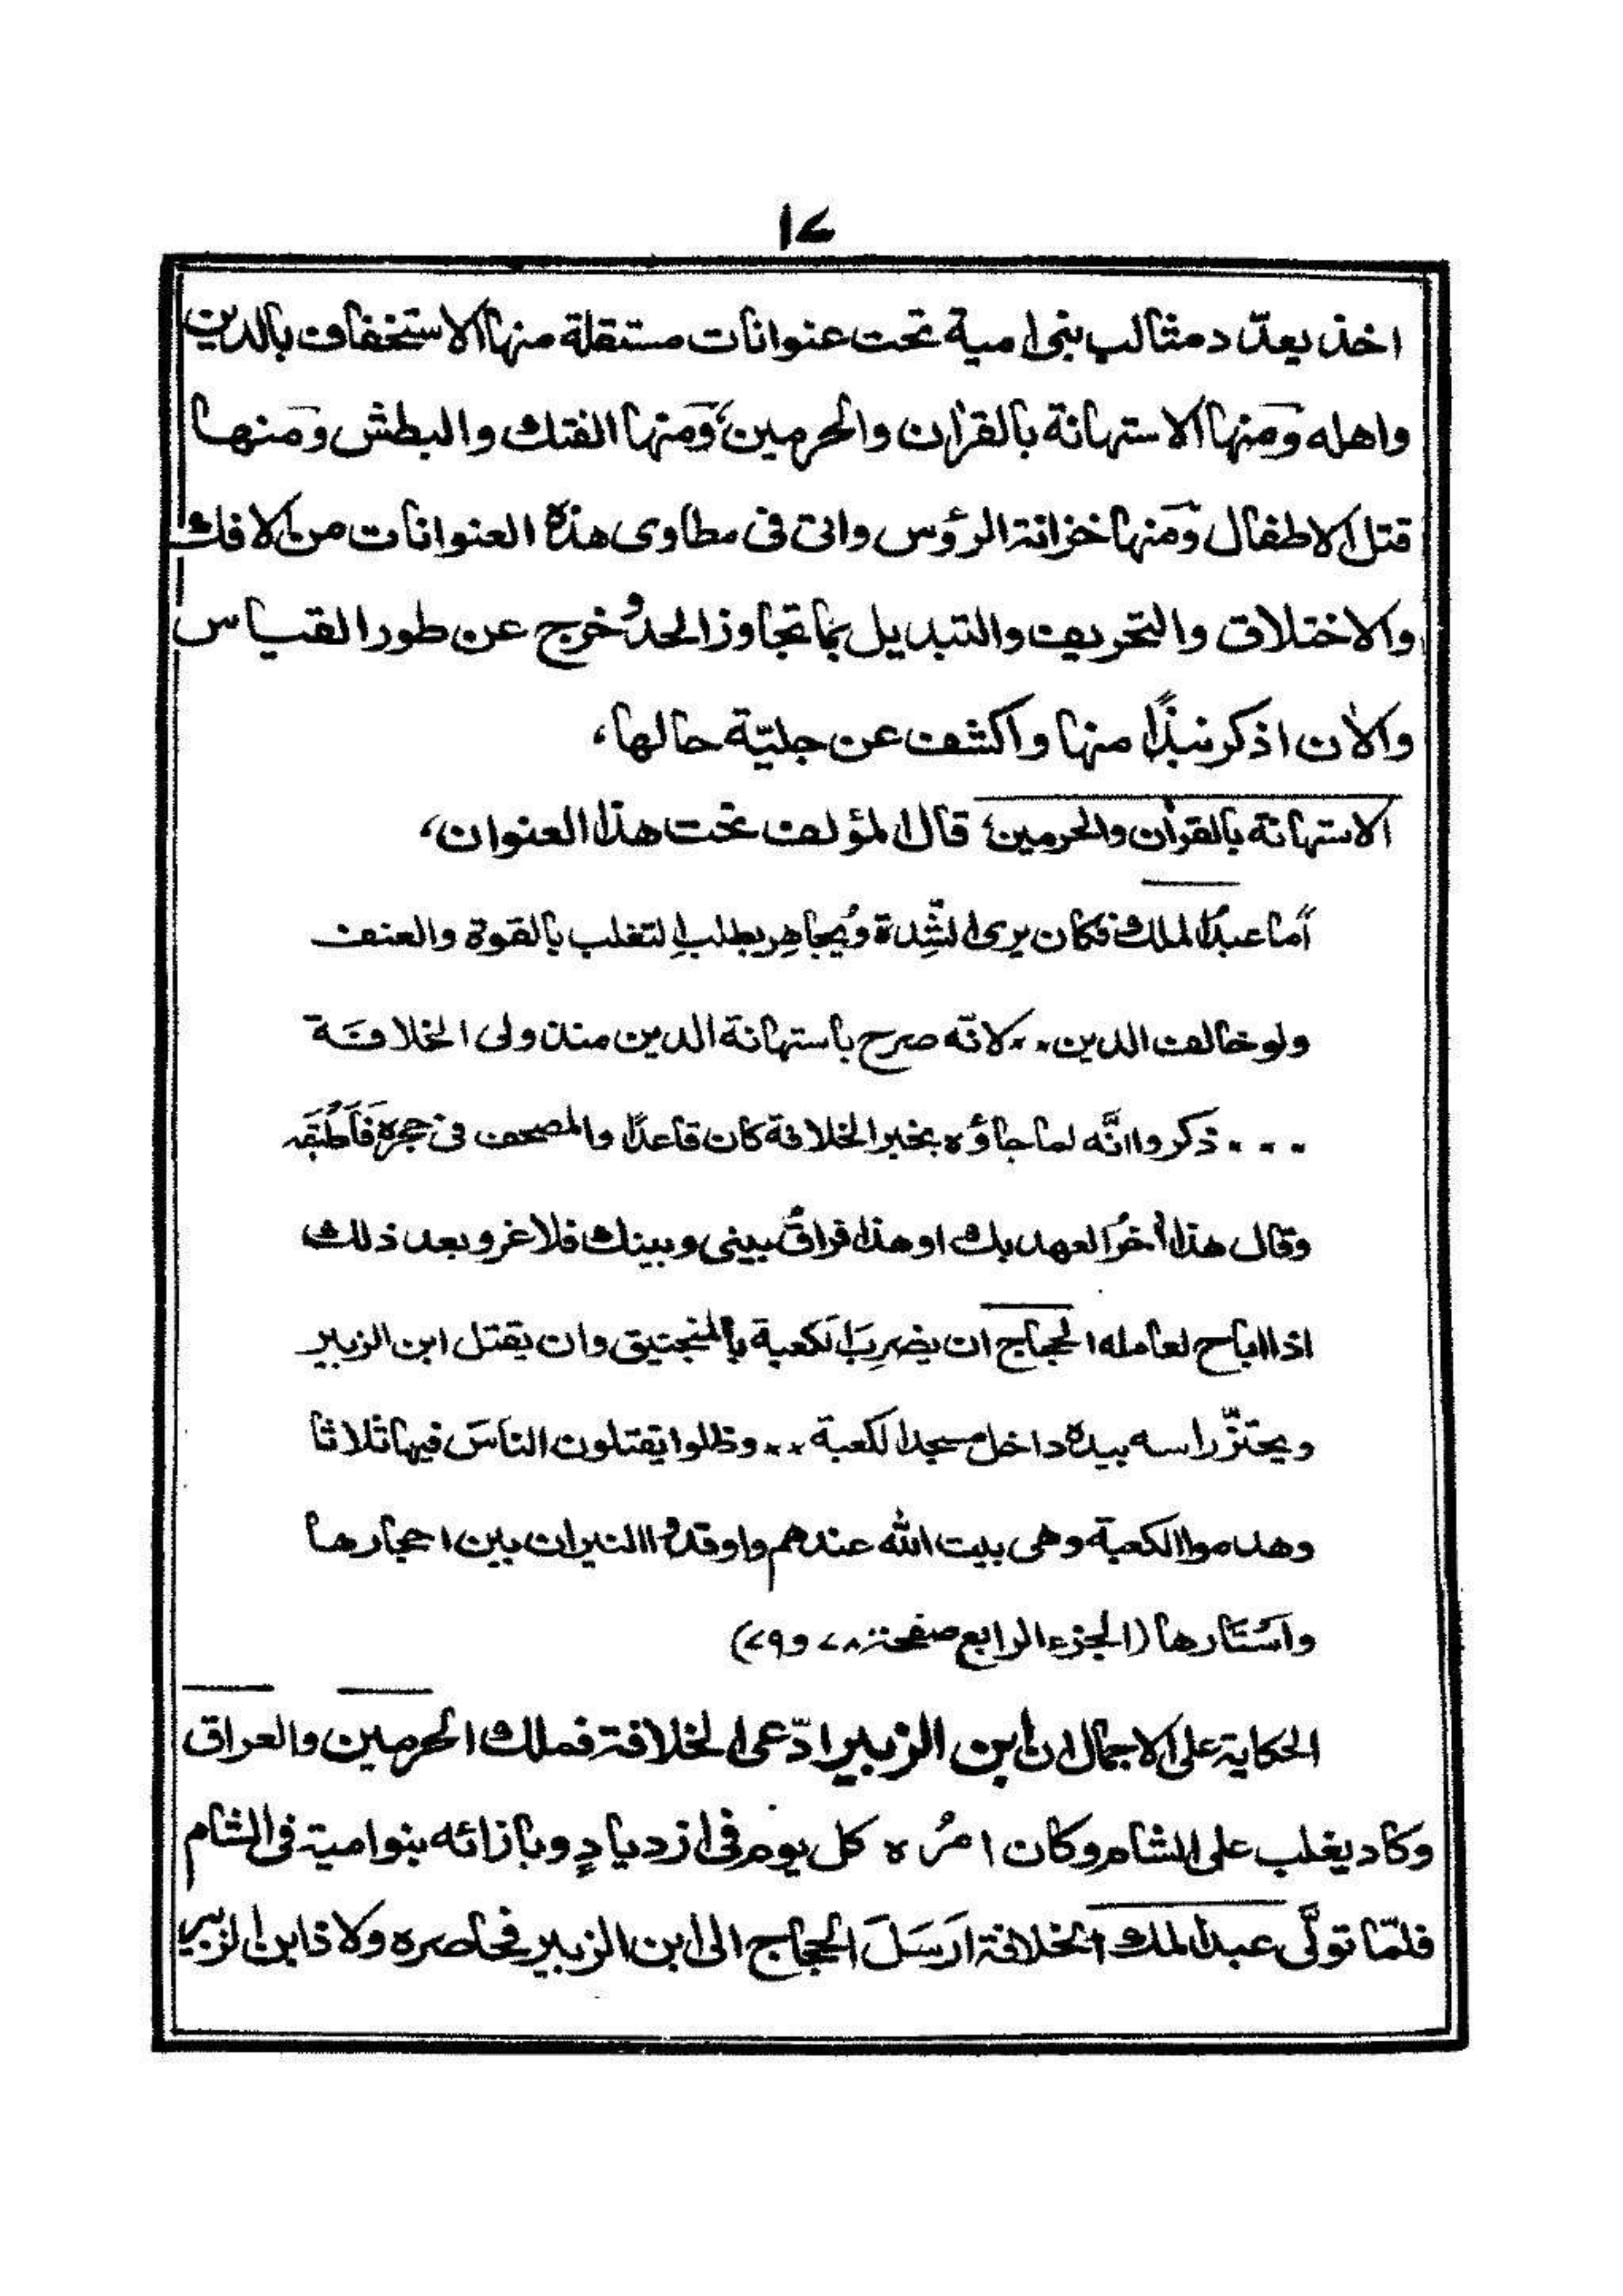 ١٧
اخذ يعدّد مثالب بنى امية تحت عنوانات مستقلة منها الاستخفاف بالدين
واهله ومنها الاستهانة بالقران والحرمين، ومنها الفتك والبطش ومنها
قتل الاطفال ومنها خزانة الرؤس واتى فى مطاوى هذه العنوانات من الافك
والاختلاق والتحريف والتبديل بما تجاوز الحد وخرج عن طور القياس
والاٰن اذكر نبذًا منها واكشف عن جليّة حالها،
الاستهانة بالقراٰن والحرمين، قال المؤلف تحت هذا العنوان،
أما عبدُ الملك فكان يرى الشِّدة ويُجاهِر بطلبِ التغلب بالقوة والعنف
ولو خالف الدين . . لانّه صرح باستهانة الدين منذ ولى الخلافَة
. . . . ذكروا انَّه لما جاؤه بخبر الخلافة كان قاعدًا والمصحف فى حجره فَاَطْبَقَه
وقال هذا أخرُ العهد بك او هذا فراقُ بينى وبينك فلا غرو بعد ذلك
اذا اباح لعامله الحجاج ان يضرِبَ الكعبة بالمنجنيق وان يقتل ابن الزبير
ويحتزّ راسه بيده داخل مسجد الكعبة . . وظلوا يقتلون الناسَ فيها ثلاثا
وهدموا الكعبة وهى بيت الله عندهم واوقدُوا النيران بين احجارها
واَستَارها (الجزء الرابع صفحة ٧٨ و ٧٩)
الحكاية على الاجمال ان ابن الزبير ادّعى الخلافة فملك الحرمين والعراق
وكاد يغلب على الشام وكان امرُه كل يوم فى ازديادٍ وبازائه بنو امية فى الشام
فلمّا تولَّى عبد الملك الخلافة اَرسَلَ الحجاج الى ابن الزبير فحاصره ولاذ ابن الزبير